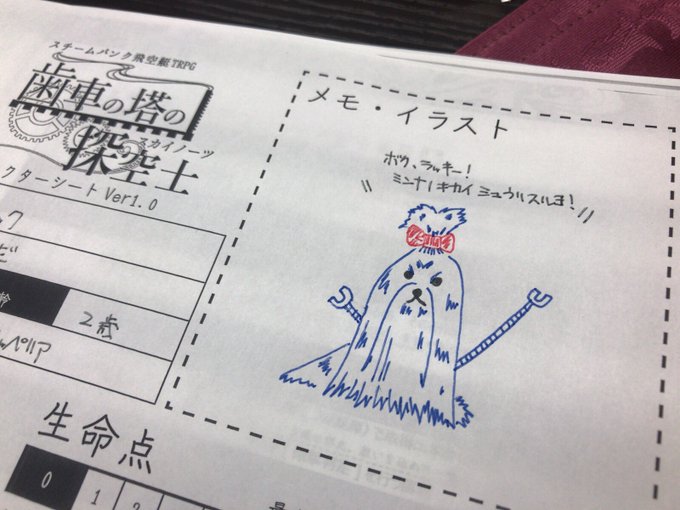 スチームパンク飛空艇TRPG
歯車の塔の
探空士
スカイノーツ
クターシート Ver1.0
ク
ビ
齢
2歳
ペリア
生命点
0
1
2
メモ・イラスト
ボク、ラッキー!
ミンナノキカイ シュウリスルヨ!